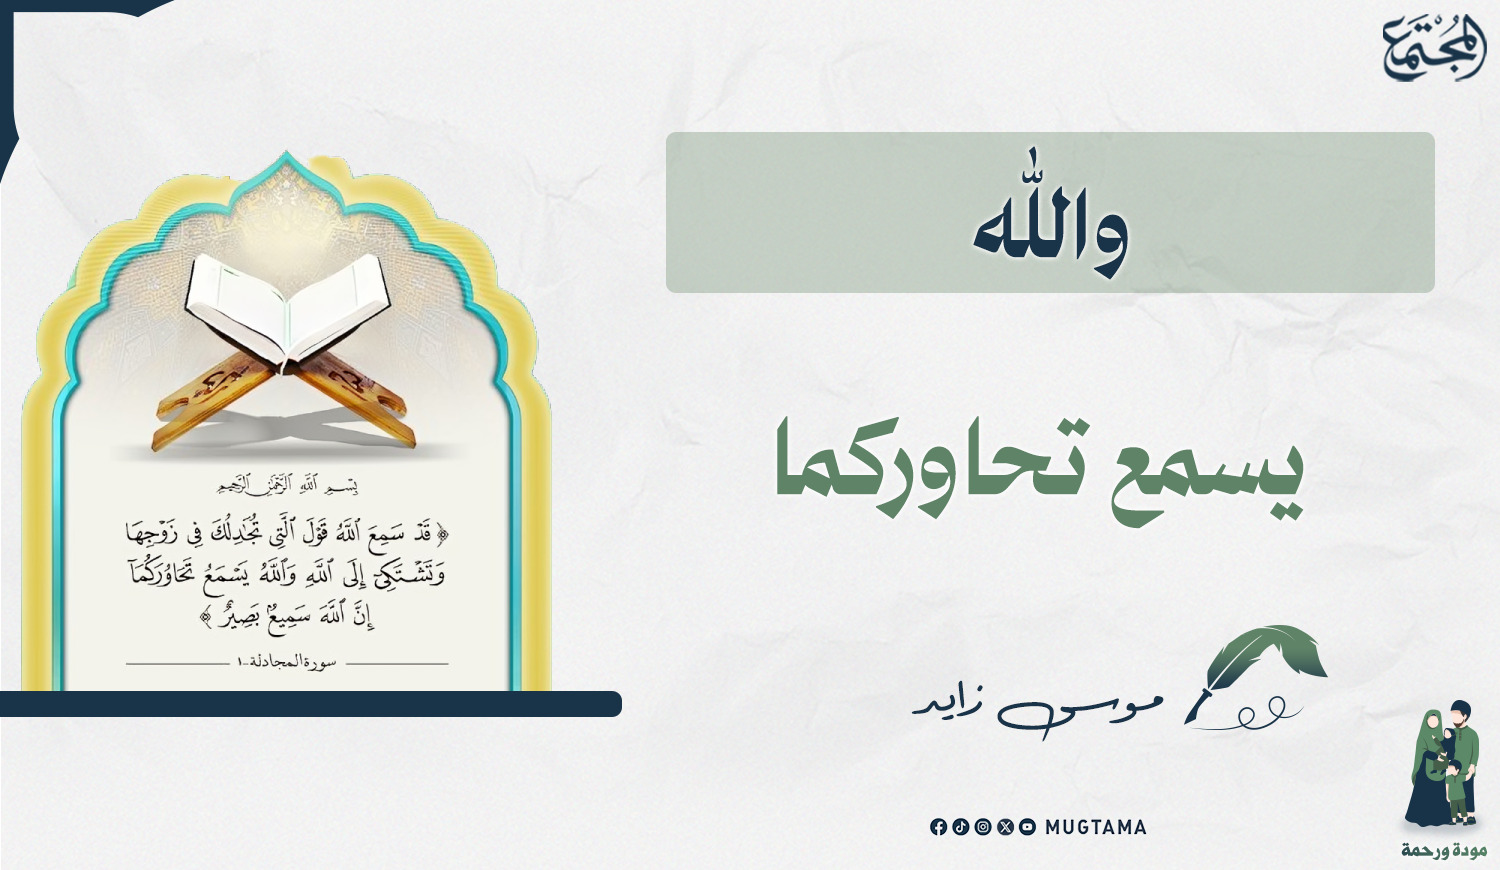 المجتمع
والله
يسمع تحاوركما
بِسْمِ ٱللَّهِ ٱلرَّحْمَٰنِ ٱلرَّحِيمِ
﴿ قَدْ سَمِعَ ٱللَّهُ قَوْلَ ٱلَّتِى تُجَٰدِلُكَ فِى زَوْجِهَا
وَتَشْتَكِىٓ إِلَى ٱللَّهِ وَٱللَّهُ يَسْمَعُ تَحَاوُرَكُمَآ
إِنَّ ٱللَّهَ سَمِيعٌۢ بَصِيرٌ ﴾
سورة المجادلة-١
موسى زايد
MUGTAMA
مودة ورحمة